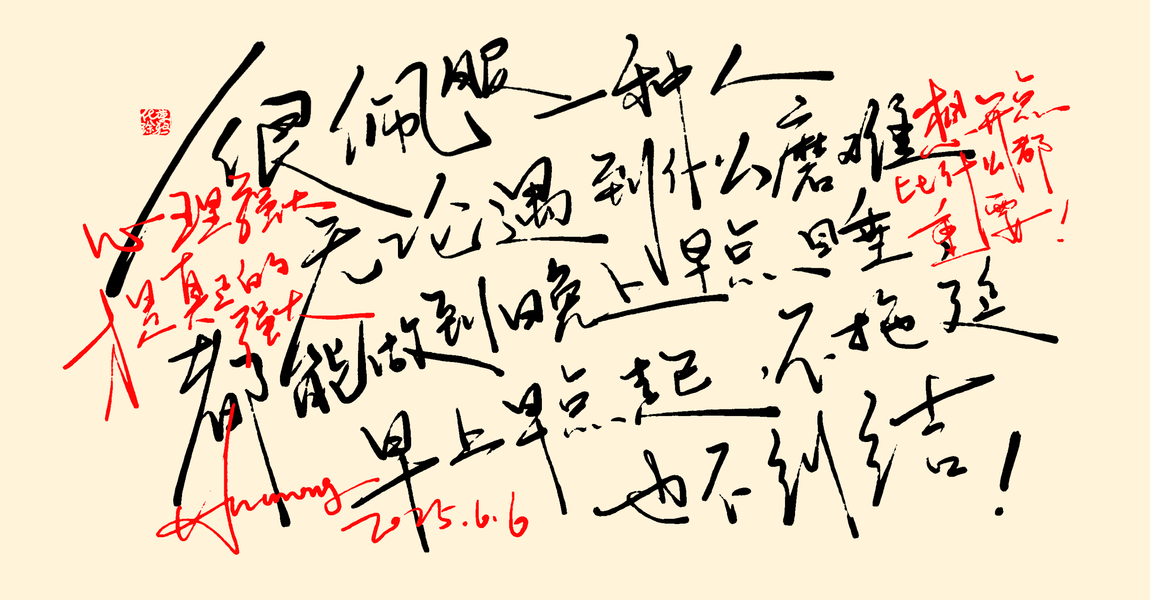 很佩服一种人
无论遇到什么磨难
都能做到晚上早点旦睡
早上早点起 不拖延
也不纠结！
想开点
比什么都
重要！
心理强大
才是真正的
强大
2025.6.6